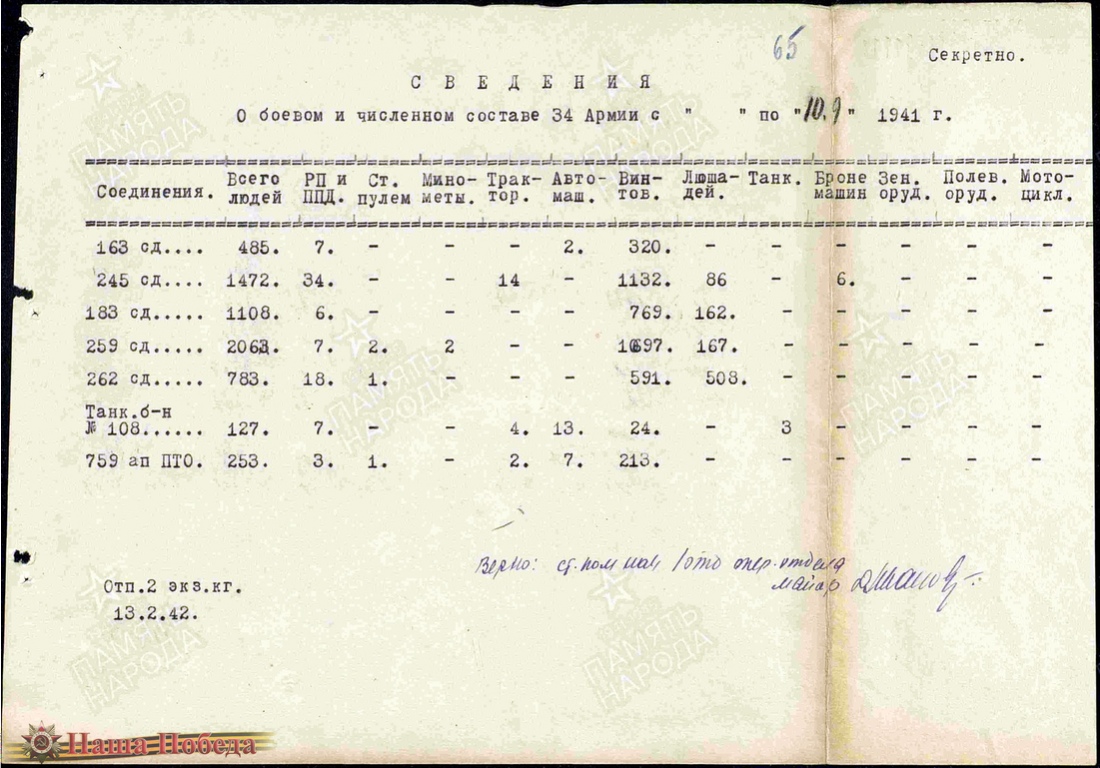 65
Секретно.
С В Е Д Е Н И Я
О боевом и численном составе 34 Армии с " " по "10.9" 1941 г.
Соединения. Всего людей РП и ППД. Ст. пулем Мино-меты. Трак-тор. Авто-маш. Вин-тов. Люшадей. Танк. Броне машин Зен. оруд. Полев. оруд. Мото-цикл.
163 сд.... 485. 7. - - - 2. 320. - - - - - -
245 сд.... 1472. 34. - - 14 - 1132. 86 - 6. - - -
183 сд..... 1108. 6. - - - - 769. 162. - - - - -
259 сд..... 2063. 7. 2. 2 - - 1697. 167. - - - - -
262 сд..... 783. 18. 1. - - - 591. 508. - - - - -
Танк.б-н
№ 108...... 127. 7. - - 4. 13. 24. - 3 - - - -
759 ап ПТО. 253. 3. 1. - 2. 7. 213. - - - - - -
Верно: ст. пом нач опер. отдела
майор
Отп.2 экз.кг.
13.2.42.
ПАМЯТЬ НАРОДА
Наша Победа